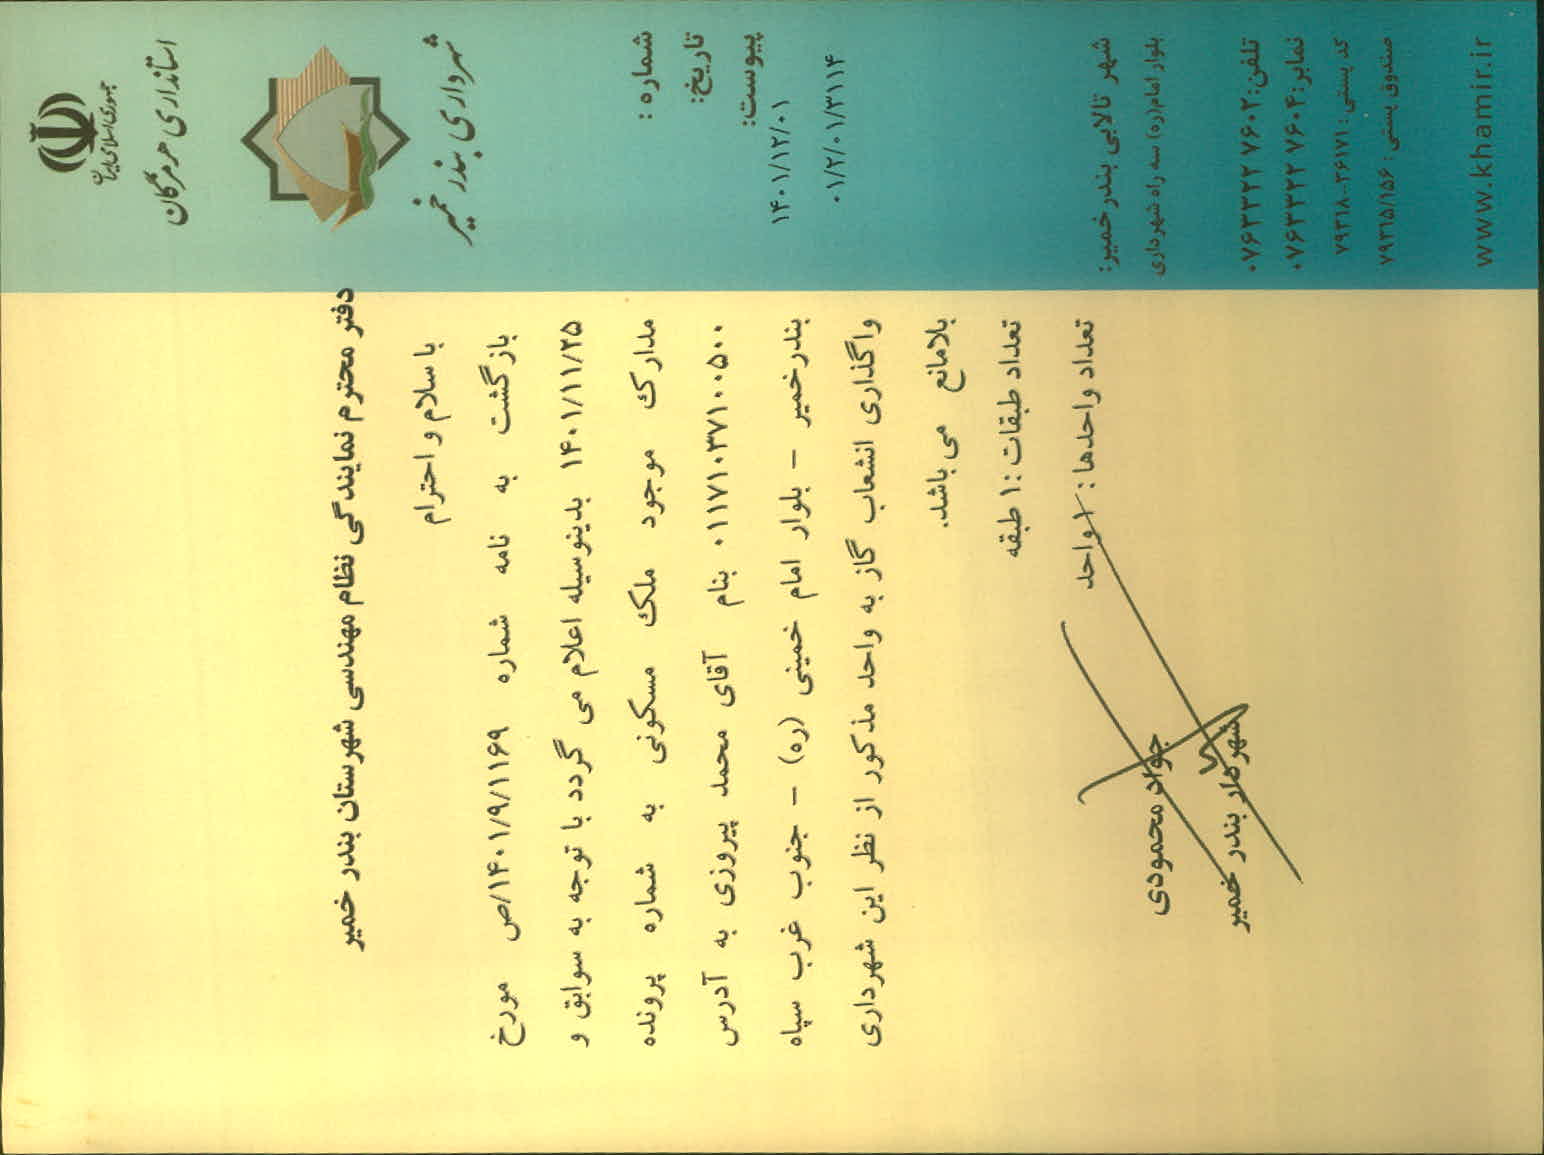 جمهوری اسلامی ایران
استانداری هرمزگان
شهرداری بندر خمیر
شماره :
تاریخ:
پیوست:
۱۴۰۱/۱۲/۰۱
۰۱/۲/۰۱/۳۱۱۴
شهر تالابی بندر خمیر:
بلوار امام(ره) سه راه شهرداری
تلفن: ۰۷۶۳۳۲۲ ۷۶۰۲
نمابر: ۰۷۶۳۳۲۲ ۷۶۰۴
کد پستی: ۷۹۳۱۸-۳۶۱۷۱
صندوق پستی: ۷۹۳۱۵/۱۵۶
www.khamir.ir
دفتر محترم نمایندگی نظام مهندسی شهرستان بندر خمیر
با سلام و احترام
بازگشت به نامه شماره ۱۴۰۱/۹/۱۱۶۹/ص مورخ
۱۴۰۱/۱۱/۲۵ بدینوسیله اعلام می گردد با توجه به سوابق و
مدارک موجود ملک مسکونی به شماره پرونده
۰۱۱۷۱۰۳۷۱۰۰۵۰۰ بنام آقای محمد پیروزی به آدرس
بندرخمیر – بلوار امام خمینی (ره) – جنوب غرب سپاه
واگذاری انشعاب گاز به واحد مذکور از نظر این شهرداری
بلامانع می باشد.
تعداد طبقات :۱ طبقه
تعداد واحدها : ۱ واحد
جواد محمودی
شهردار بندر خمیر